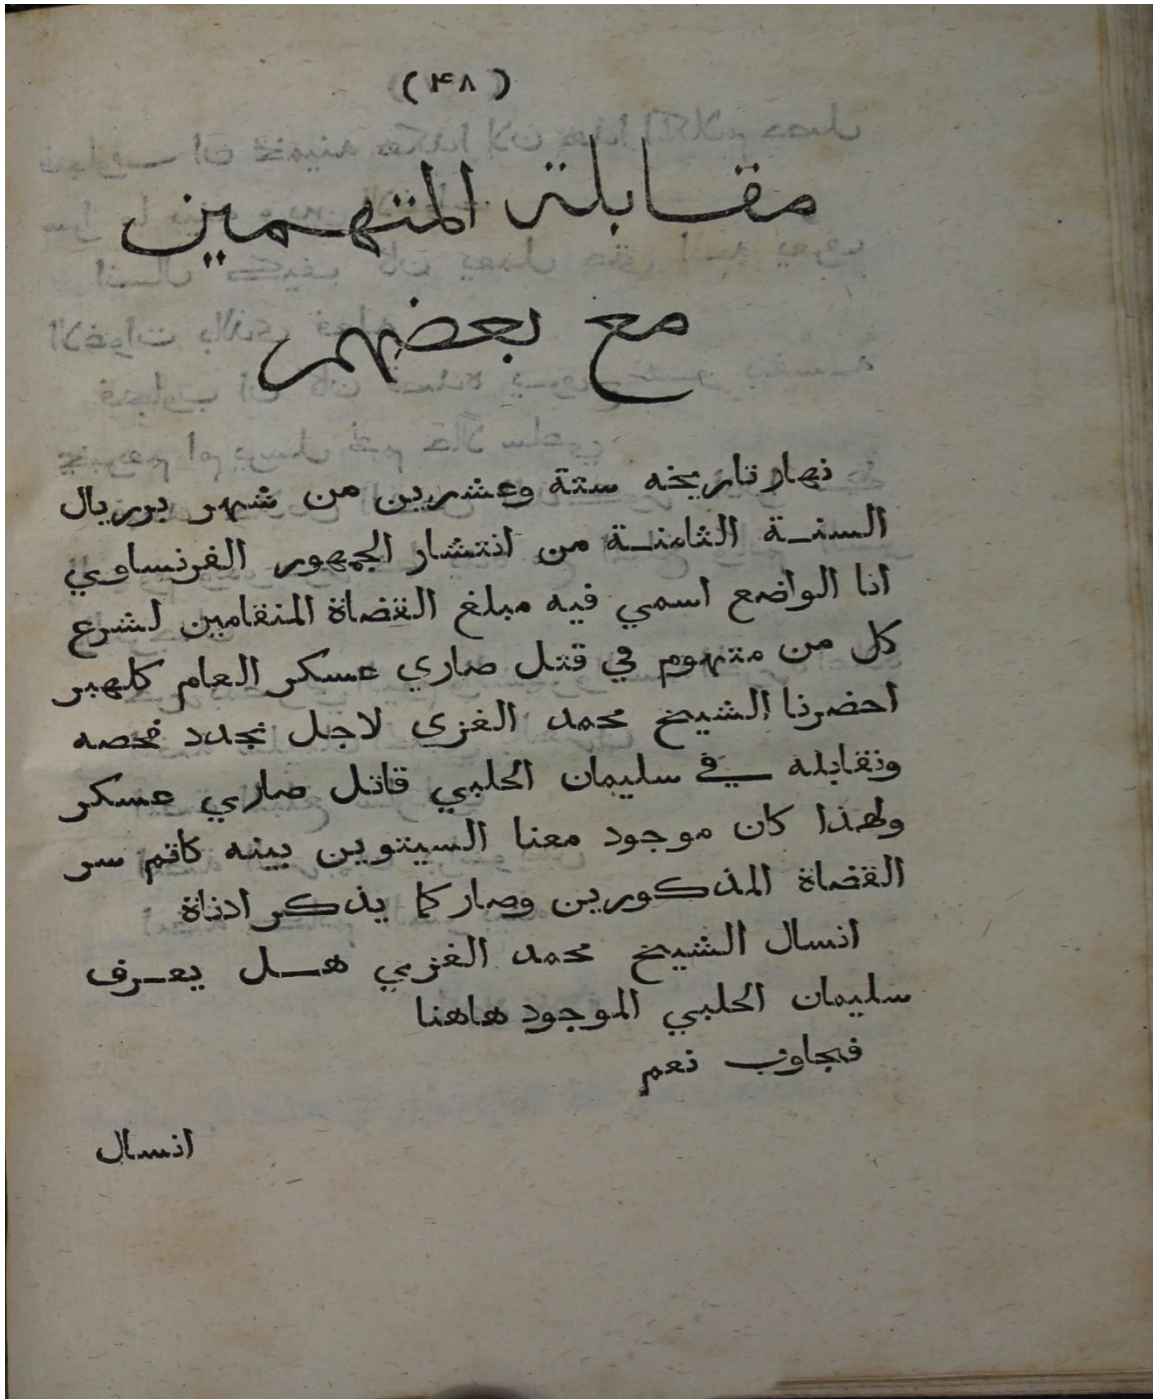 (۴۸)
مقابلة المتهمين
مع بعضهم
نهار تاريخه ستة وعشرين من شهر بوريال
السنة الثامنة من انتشار الجمهور الفرنساوي
انا الواضع اسمي فيه مبلغ القضاة المنقامين لشرع
كل من متهوم في قتل صاري عسكر العام كلهبر
احضرنا الشيخ محمد الغزي لاجل نجدد فحصه
ونقابله في سليمان الحلبي قاتل صاري عسكر
ولهذا كان موجود معنا السيتوين بينه كاتم سر
القضاة المذكورين وصار كما يذكر ادناة
انسال الشيخ محمد الغزي هل يعرف
سليمان الحلبي الموجود هاهنا
فجاوب نعم
انسال